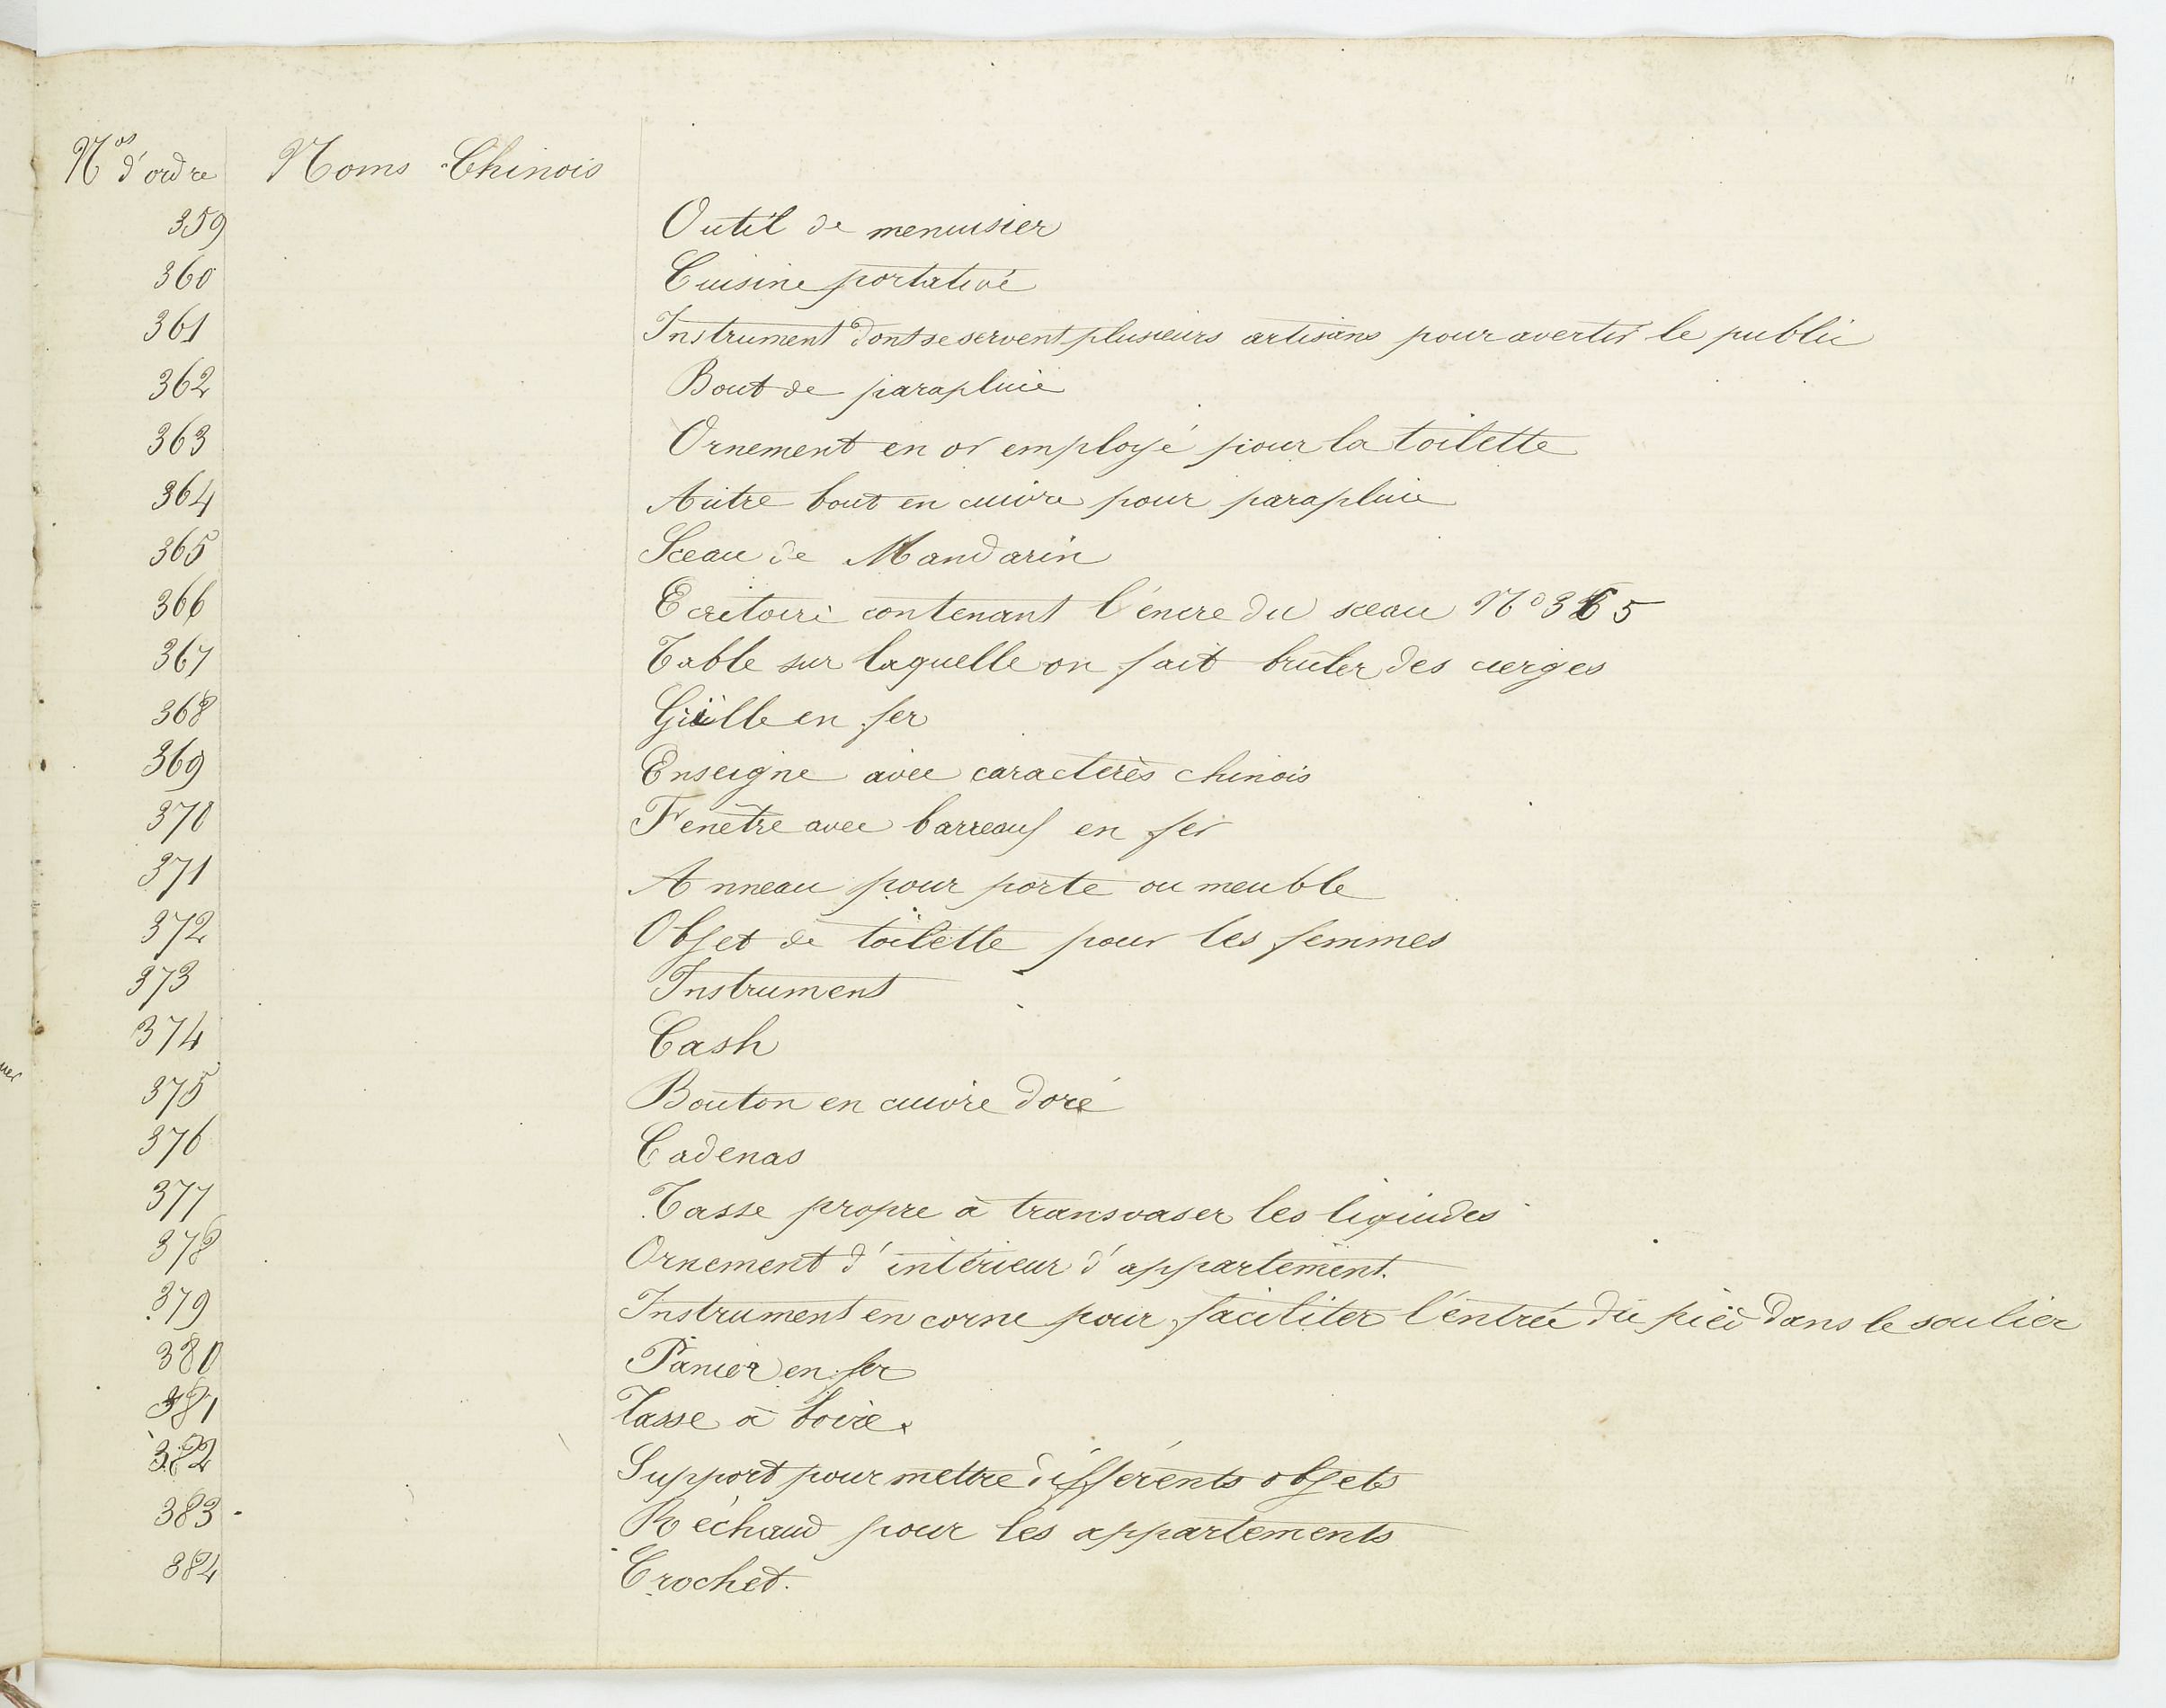 Nos d'ordre Noms Chinois
359 Outil de menuisier
360 Cuisine portative
361 Instrument dont se servent plusieurs artisans pour avertir le public
362 Bout de parapluie
363 Ornement en or employé pour la toilette
364 Autre bout en cuivre pour parapluie
365 Sceau de Mandarin
366 Ecritoire contenant l'encre du sceau No 365
367 Table sur laquelle on fait bruler des cierges
368 Grille en fer
369 Enseigne avec caractères chinois
370 Fenêtre avec barreaux en fer
371 Anneau pour porte ou meuble
372 Objet de toilette pour les femmes
373 Instrument
374 Cash
375 Bouton en cuivre doré
376 Cadenas
377 Tasse propre à transvaser les liquides
378 Ornement d'intérieur d'appartement.
379 Instrument en corne pour faciliter l'entrée du pied dans le soulier
380 Panier en fer
381 Tasse à boire
382 Support pour mettre différents objets
383 Réchaud pour les appartements
384 Crochet.